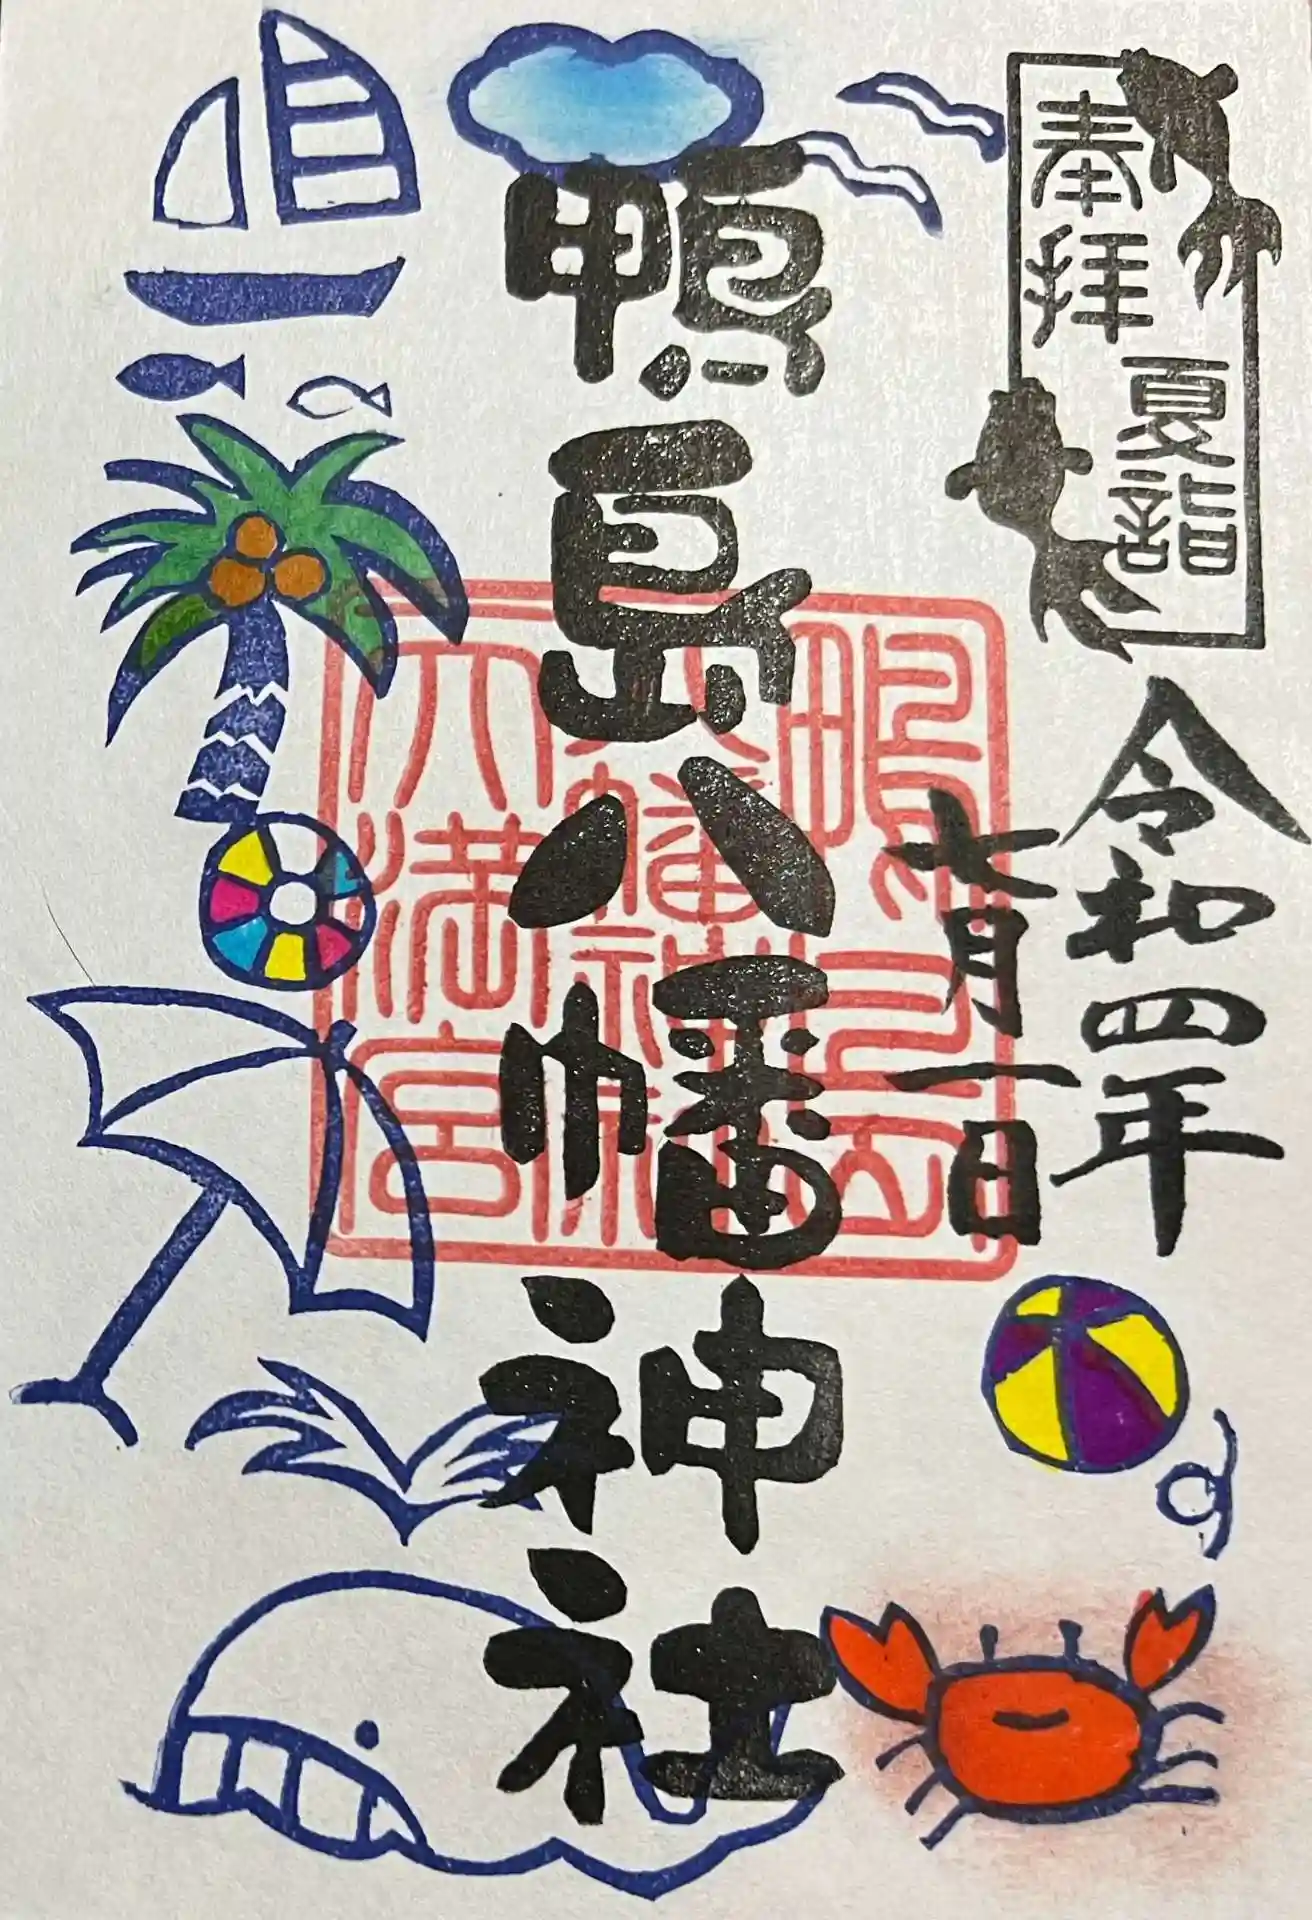 奉拝
夏詣
令和四年
七月一日
鴨島八幡神社
鴨島一
八幡神社
天満宮